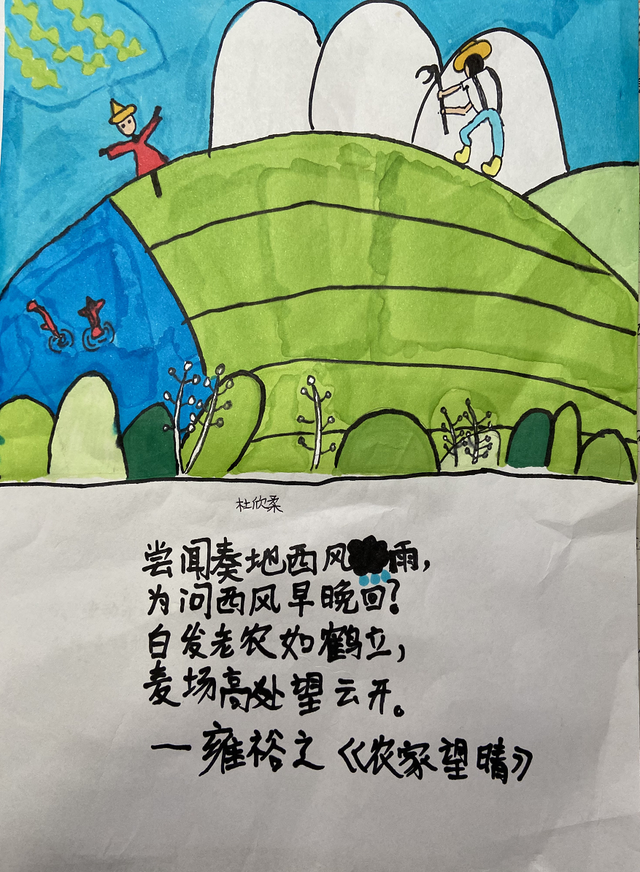 杜欣柔
尝闻奏地西风雨，
为问西风早晚回？
白发老农如鹤立，
麦场高处望云开。
—雍裕之《农家望晴》